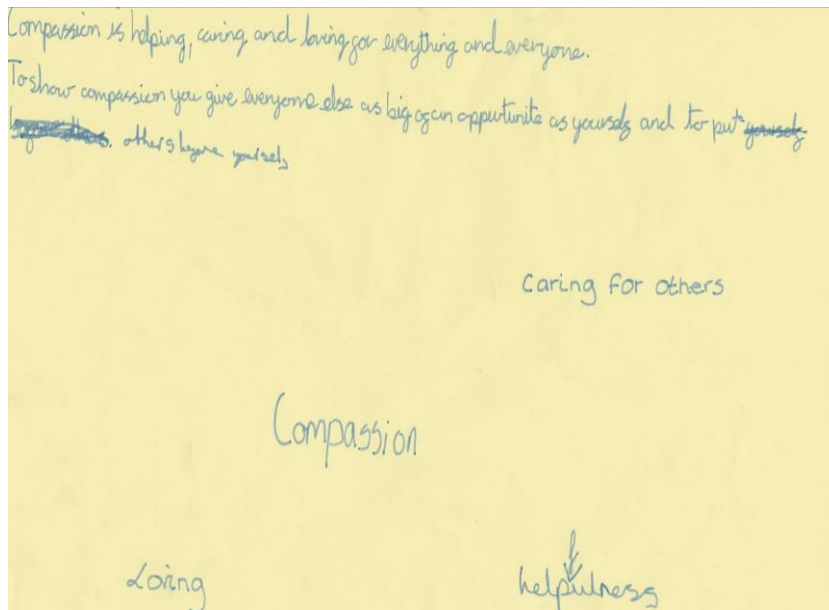 Compassion is helping, caring and loving for everything and everyone.
To show compassion you give everyone else as big of an oppurtunite as yourself and to put yourself
others before yourself
Caring for others
Compassion
Loving
helpfulness